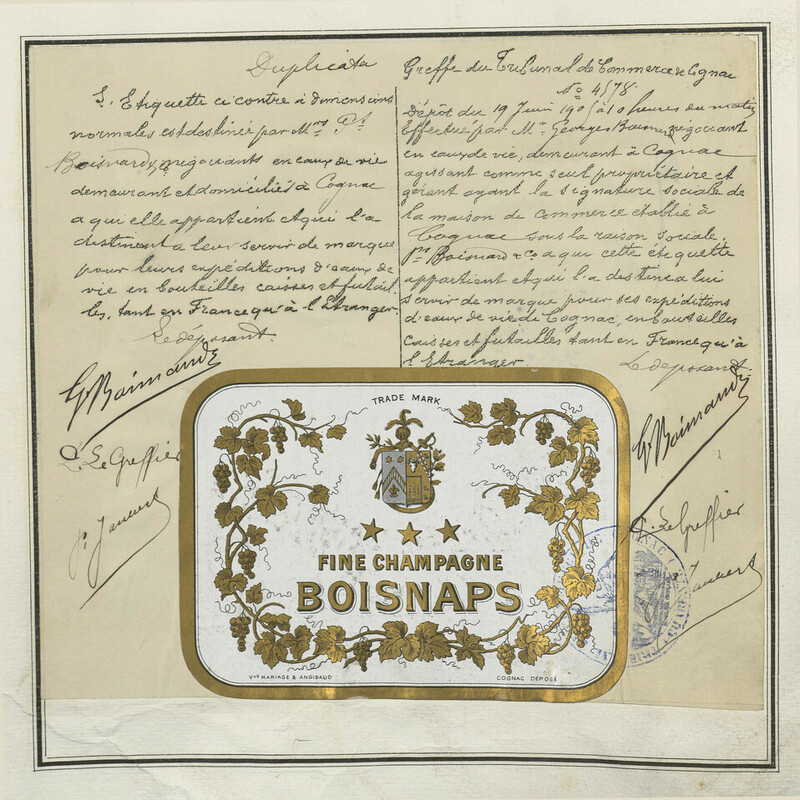 Duplicata
L'Etiquette ci contre à dimensions
normales est destinée par Mrs
négociants en eaux de vie
demeurant et domiciliés à Cognac
a qui elle appartient et qui l'a
destinent a leur servir de marque
pour leurs expéditions d'eaux de
vie en bouteilles caisses et futail
les, tant en France qu'à l'Etranger.
Le déposant.
P. Le Greffier
Greffe du Tribunal de Commerce de Cognac
No 4578
Dépôt du 19 Juin 1905 à 10 heures du matin
Effectué par Mr Georges négociant
en eaux de vie, demeurant à Cognac
agissant comme seul propriétaire et
gérant ayant la signature sociale de
la maison de Commerce établie à
Cognac sous la raison sociale.
& Co a qui cette étiquette
appartient et qui l'a destinée a lui
servir de marque pour ses expéditions
d'eaux de vie de Cognac, en bouteilles
caisses et futailles tant en France qu'à
l'Etranger.
Le déposant.
P. Le Greffier
TRADE MARK
FINE CHAMPAGNE
BOISNAPS
Vve MARIAGE & ANGIBAUD
COGNAC DÉPOSÉ